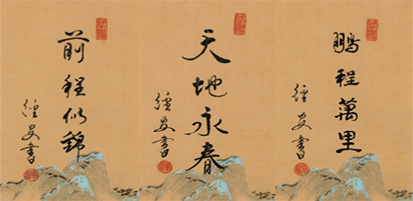 鵬程萬里
經安書
天地永春
經安書
前程似錦
經安書